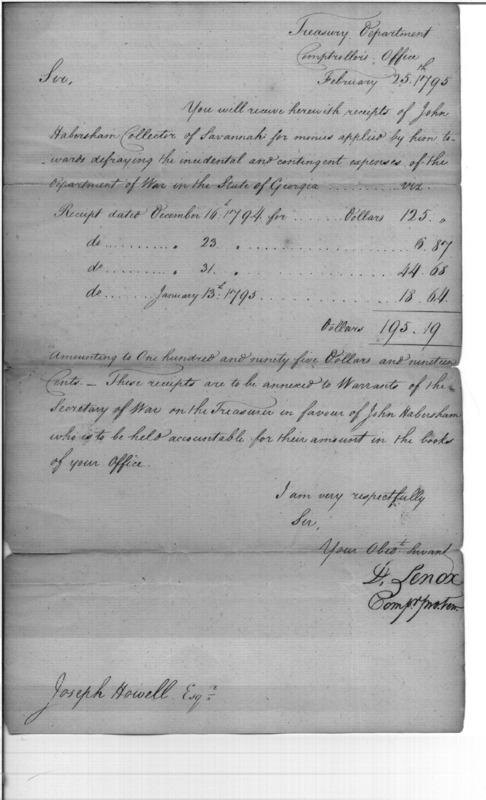 Treasury Department
Comptrollers Office
February 25th 1795
Sir,
You will receive herewith receipts of John
Habersham Collector of Savannah for monies applied by him to-
-wards defraying the incidental and contingent expenses of the
Department of War in the State of Georgia .......... viz.
Receipt dated December 16th 1794 for ...... Dollars 125 "
do .......... " 23 " .................... 6.87
do .......... " 31 " .................... 44.68
do ....... January 13th 1795 .................... 18.64
Dollars 195.19
Amounting to One hundred and ninety five Dollars and nineteen
Cents. — These receipts are to be annexed to Warrants of the
Secretary of War on the Treasurer in favour of John Habersham
who is to be held accountable for their amount in the books
of your Office.
I am very respectfully
Sir,
Your Obedt. Servant
D. Lenox
Compr. pro. tem.
Joseph Howell Esqr.